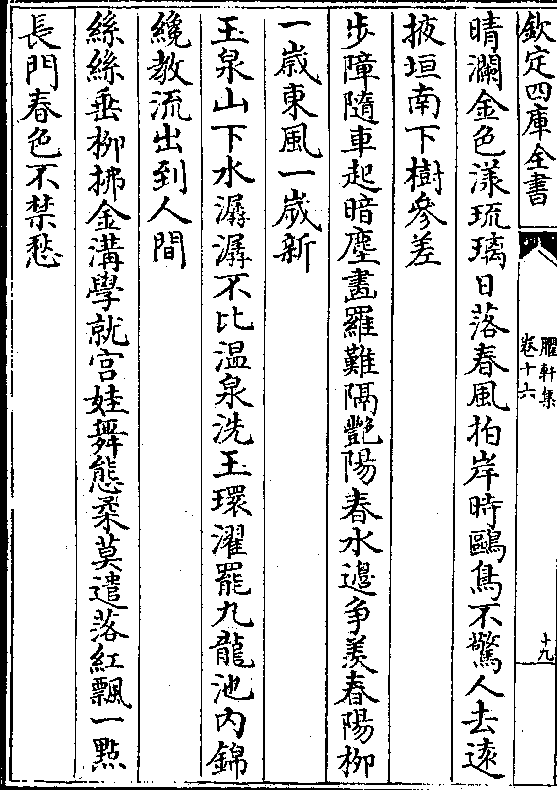 欽定四庫全書
臞軒集
卷十六
十九
晴瀾金色漾琉璃日落春風拍岸時鷗鳥不驚人去逺
掖垣南下樹參差
步障隨車起暗塵畫羅難隔艷陽春水邉争羨春陽柳
一歲東風一歲新
玉泉山下水潺潺不比温泉洗玉環濯罷九龍池内錦
纔教流出到人間
絲絲垂柳拂金溝學就宫娃舞態柔莫遣落紅飄一點
長門春色不禁愁